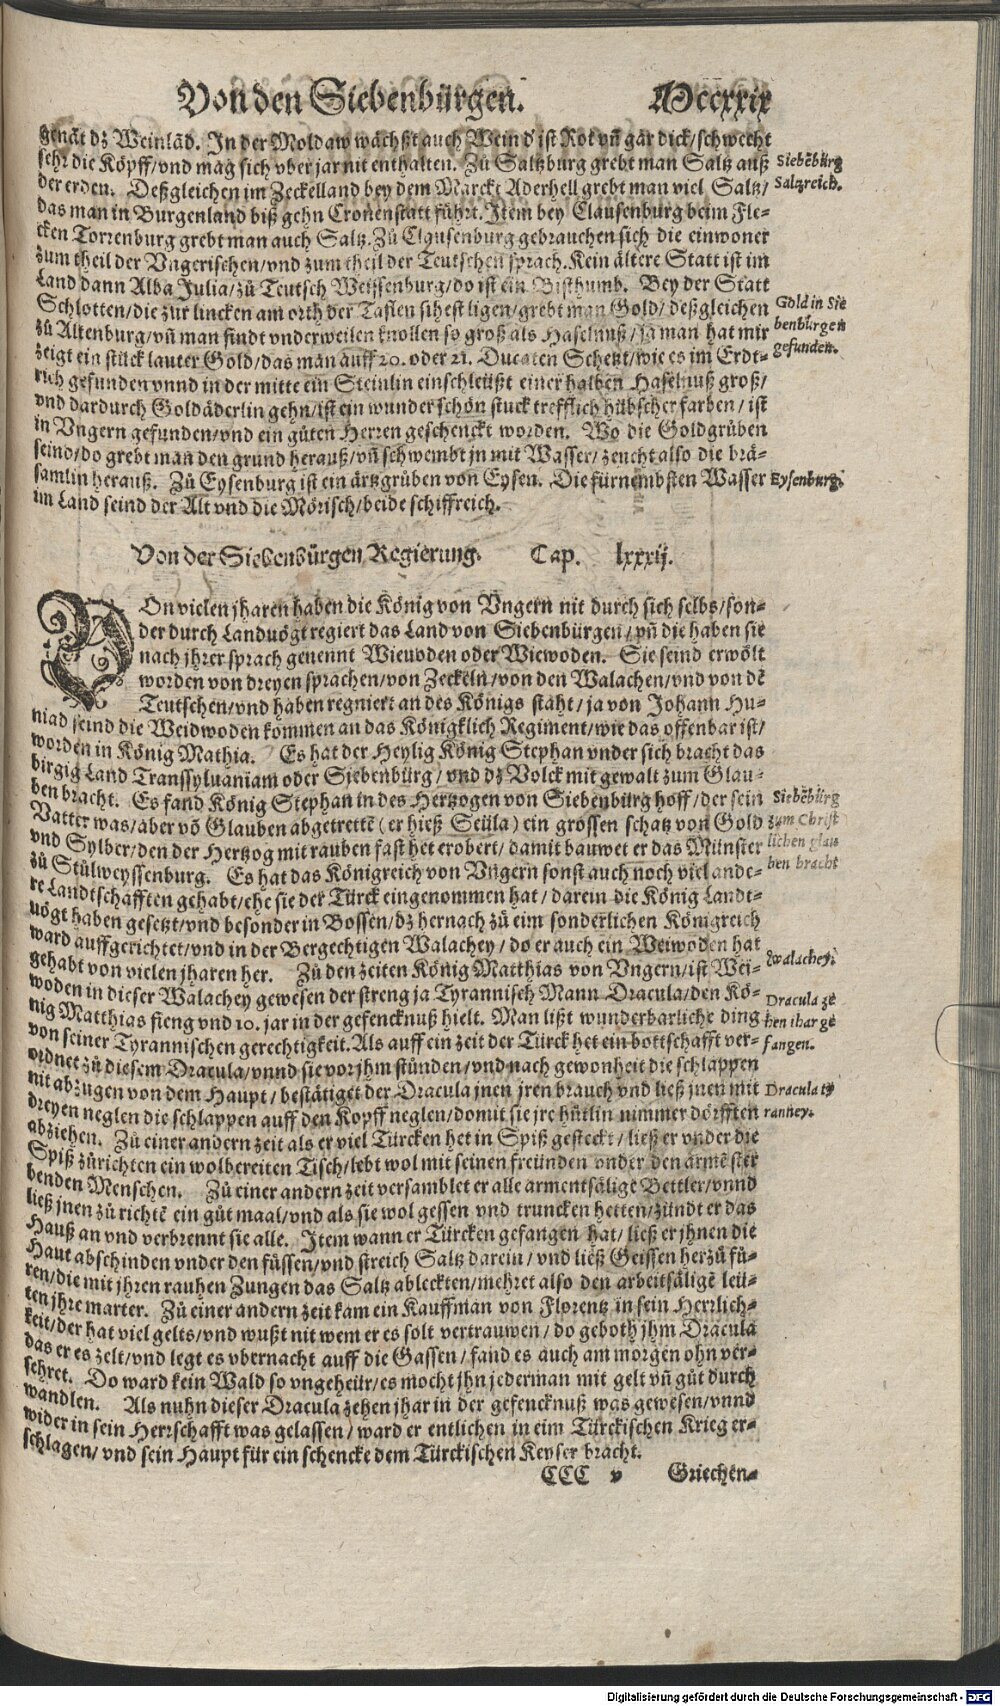 Von den Siebenbürgen. Mccxxix
genãt dz Weinlãd. In der Moldaw wächßt auch Wein d' ist Rot vñ gar dick/schwecht
sehr die Köpff/vnd mag sich vber jar nit enthalten. Zů Saltzburg grebt man Saltz auß
der erden. Deßgleichen im Zeckelland bey dem Marckt Aderhell grebt man viel Saltz/
Siebẽbürg
Saltzreich.
das man in Burgenland biß gehn Cronenstatt führt. Item bey Clausenburg beim Fle-
cken Torrenburg grebt man auch Saltz. Zů Clausenburg gebrauchen sich die einwoner
zum theil der Vngerischen/vnd zum theil der Teutschen sprach. Kein ältere Statt ist im
Land dann Alba Julia/zů Teutsch Weissenburg/do ist ein Bisthumb. Bey der Statt
Schlotten/die zur lincken am orth der Taflen sihest ligen/grebt man Gold/deßgleichen
zů Altenburg/vñ man findt vnderweilen knollen so groß als Haselnuß/ja man hat mir
Gold in Sie
benbürgen
gefunden.
zeigt ein stück lauter Gold/das man auff 20. oder 21. Ducaten Schetzt/wie es im Erdt-
rich gefunden vnnd in der mitte ein Steinlin einschleüßt einer halben Haselnuß groß/
vnd dardurch Goldäderlin gehn/ist ein wunder schön stuck trefflich hübscher farben/ist
in Vngern gefunden/vnd ein gůten Herren geschenckt worden. Wo die Goldgrůben
seind/do grebt man den grund herauß/vñ schwembt jn mit Wasser/zeucht also die brä-
samlin herauß. Zů Eysenburg ist ein ärtzgrůben von Eysen. Die fürnembsten Wasser
Eysenburg.
im Land seind der Alt vnd die Mörisch/beide schiffreich.
Von der Siebenbürgen Regierung. Cap. lxxxij.
VOn vielen jharen haben die König von Vngern nit durch sich selbs/son-
der durch Landuögt regiert das Land von Siebenbürgen/vñ die haben sie
nach jhrer sprach genennt Wieuoden oder Wiewoden. Sie seind erwölt
worden von dreyen sprachen/von Zeckeln/von den Walachen/vnd von dẽ
Teutschen/vnd haben regniert an des Königs staht/ja von Johann Hu-
niad seind die Weidwoden kommen an das Königklich Regiment/wie das offenbar ist/
worden in König Mathia. Es hat der Heylig König Stephan vnder sich bracht das
birgig Land Transsyluaniam oder Siebenbürg/vnd dz Volck mit gewalt zum Glau-
ben bracht. Es fand König Stephan in des Hertzogen von Siebenbürg hoff/der sein
Vatter was/aber võ Glauben abgetrettẽ (er hieß Seüla) ein grossen schatz von Gold
vnd Sylber/den der Hertzog mit rauben fast het erobert/damit bauwet er das Münster
zů Stůlweyssenburg. Es hat das Königreich von Vngern sonst auch noch viel ande-
Siebẽbürg
zum Christ
lichen glau
ben bracht
re Landtschafften gehabt/ehe sie der Türck eingenommen hat/darein die König Landt-
uögt haben gesetzt/vnd besonder in Bossen/dz hernach zů eim sonderlichen Königreich
ward auffgerichtet/vnd in der Bergechtigen Walachey/do er auch ein Weiwoden hat
gehabt von vielen jharen her. Zů den zeiten König Matthias von Vngern/ist Wei-
Walachey.
woden in dieser Walachey gewesen der streng ja Tyrannisch Mann Dracula/den Kö-
nig Matthias fieng vnd 10. jar in der gefencknuß hielt. Man lißt wunderbarliche ding
von seiner Tyrannischen gerechtigkeit. Als auff ein zeit der Türck het ein bottschafft ver-
Dracula ze
hen jhar ge
fangen.
ordnet zů diesem Dracula/vnnd sie vor jhm stůnden/vnd nach gewonheit die schlappen
nit abzugen von dem Haupt/bestätiget der Dracula jnen jren brauch vnd ließ jnen mit
dreyen neglen die schlappen auff den Kopff neglen/domit sie jre hütlin nimmer dörfften
Dracula ty
ranney.
abziehen. Zů einer andern zeit als er viel Türcken het in Spiß gesteckt/ließ er vnder die
Spiß zůrichten ein wolbereiten Tisch/lebt wol mit seinen freünden vnder den armẽ ster
benden Menschen. Zů einer andern zeit versamblet er alle armentsälige Bettler/vnnd
ließ jnen zů richtẽ ein gůt maal/vnd als sie wol gessen vnd truncken hetten/zündt er das
Hauß an vnd verbrennt sie alle. Item wann er Türcken gefangen hat/ließ er jhnen die
Haut abschinden vnder den füssen/vnd streich Saltz darein/vnd ließ Geissen herzů fü-
ren/die mit jhren rauhen Zungen das Saltz ableckten/mehret also den arbeitsäligẽ leü-
ten jhre marter. Zů einer andern zeit kam ein Kauffman von Florentz in sein Herrlich-
keit/der hat viel gelts/vnd wußt nit wem er es solt vertrauwen/do geboth jhm Dracula
das er es zelt/vnd legt es vbernacht auff die Gassen/fand es auch am morgen ohn ver-
sehret. Do ward kein Wald so vngeheür/es mocht jhn jederman mit gelt vñ gůt durch
wandlen. Als nuhn dieser Dracula zehen jhar in der gefencknuß was gewesen/vnnd
wider in sein Herrschafft was gelassen/ward er entlichen in eim Türckischen Krieg er-
schlagen/vnd sein Haupt für ein schencke dem Türckischen Keyser bracht.
CCC v Griechen-
Digitalisierung gefördert durch die Deutsche Forschungsgemeinschaft - DFG